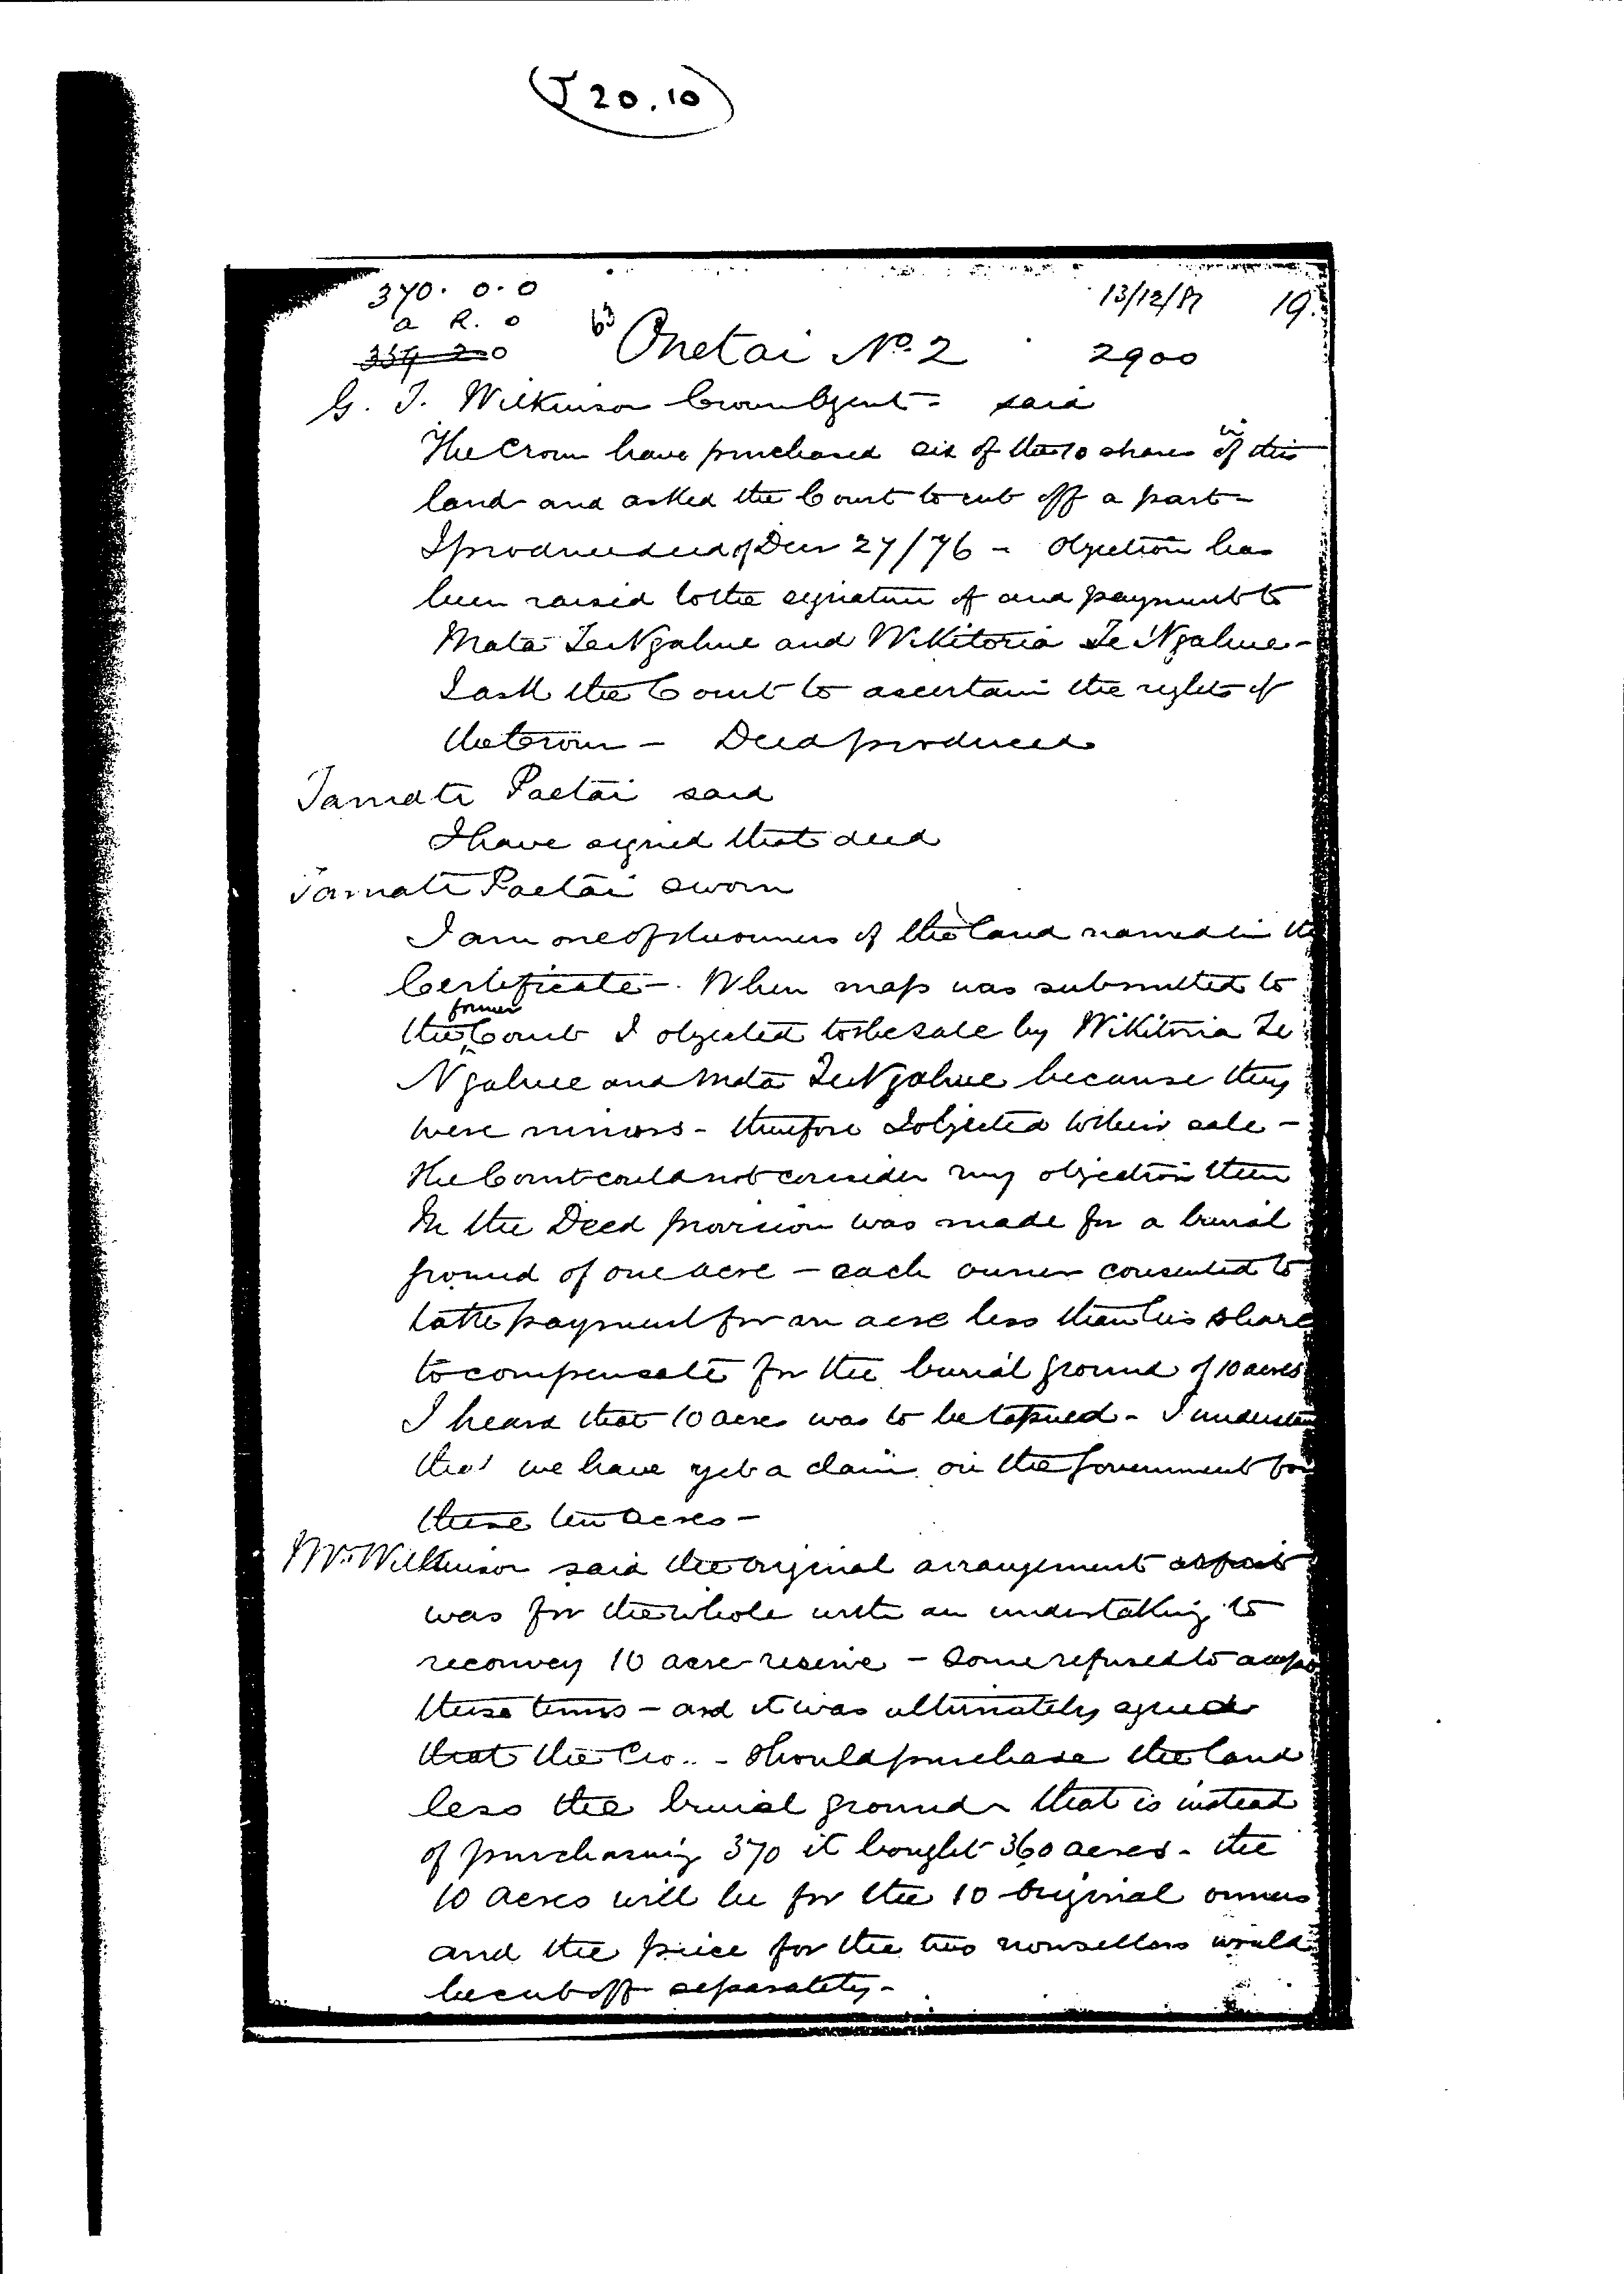 (J 20.10)
370. 0. 0
13/12/87 19.
a R. 0
63 Onetai No. 2 2900
G. T. Wilkinson Crown Agent - said
The Crown have purchased six of the 10 shares in of this
land and asked the Court to cut off a part -
I produce deed of Decr 27/76 - Objection has
been raised to the signature of and payment to
Mata Te Ngahue and Wikitoria Te Ngahue -
I ask the Court to ascertain the rights of
the Crown - Deed produced
Tamati Paetai said
I have signed that deed
Tamati Paetai sworn
I am one of the owners of the land named in the
Certificate -. When map was submitted to
the former Court I objected to the sale by Wikitoria Te
Ngahue and Mata Te Ngahue because they
were minors - therefore I objected to their sale -
The Court could not consider my objection then
In the Deed provision was made for a burial
ground of one acre - each owner consented to
take payment for an acre less than his share
to compensate for the burial ground of 10 acres
I heard that 10 acres was to be - I understand
that we have yet a claim on the Government for
these ten acres -
Mr. Wilkinson said the original arrangement
was for the whole with an undertaking to
reconvey 10 acre reserve - Some refused to accept
these terms - and it was ultimately agreed
that the Cro.. - should purchase the land
less the burial ground - that is instead
of purchasing 370 it bought 360 acres - the
10 acres will be for the 10 original owners
and the piece for the two nonsellers would
be cut off separately -